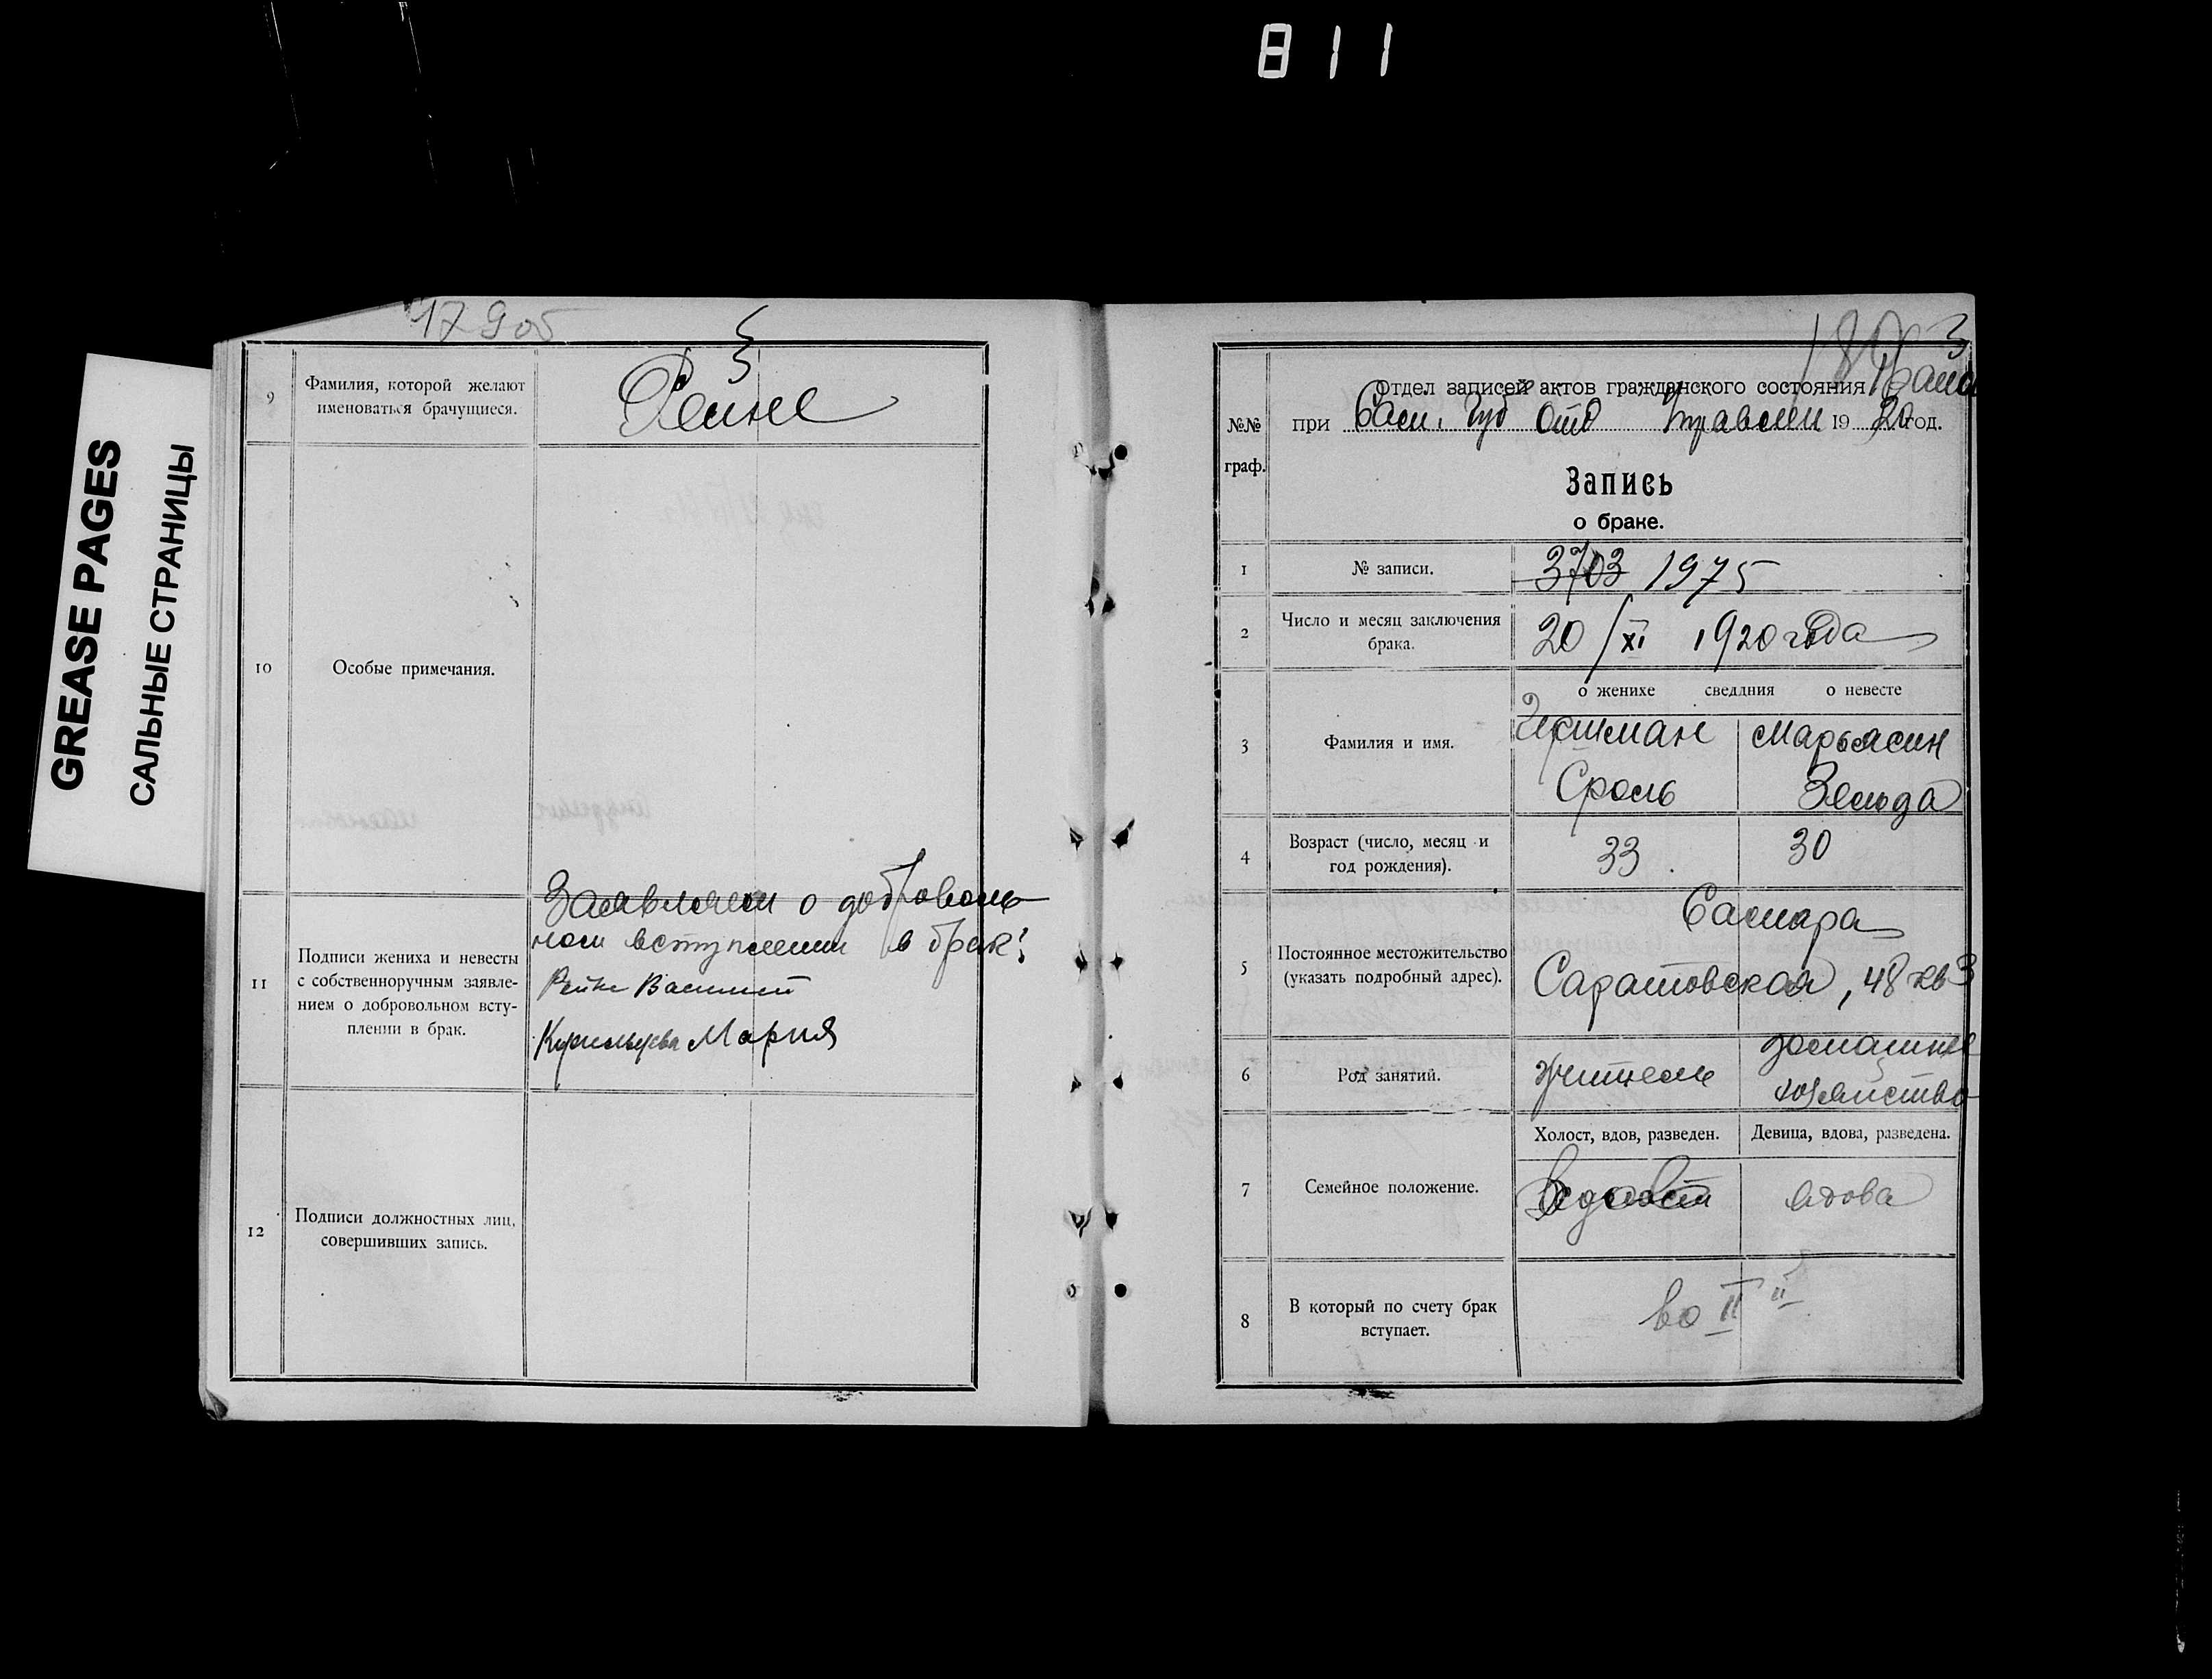 811
GREASE PAGES
САЛЬНЫЕ СТРАНИЦЫ
17905
9
Фамилия, которой желают
именоваться брачущиеся.
Рейне
10
Особые примечания.
11
Подписи жениха и невесты
с собственноручным заявле-
нием о добровольном всту-
плении в брак.
Заявляем о доброволь
ном вступлении в брак:
Рейне Василий
Мария
12
Подписи должностных лиц,
совершивших запись.
№№
граф.
Отдел записей актов гражданского состояния
при Сам. Губ Отд Управлен 1920 год.
Запись
о браке.
1
№ записи.
3703 1975
2
Число и месяц заключения
брака.
20/XI 1920 года
о женихе сведдния о невесте
3
Фамилия и имя.
Марьясин
Сроль
Зельда
4
Возраст (число, месяц и
год рождения).
33
30
5
Постоянное местожительство
(указать подробный адрес).
Самара
Саратовская, 48 кв 3
6
Род занятий.
Учитель
домашнее
хозяйство
7
Семейное положение.
Холост, вдов, разведен.
Девица, вдова, разведена.
вдова
8
В который по счету брак
вступает.
во II й